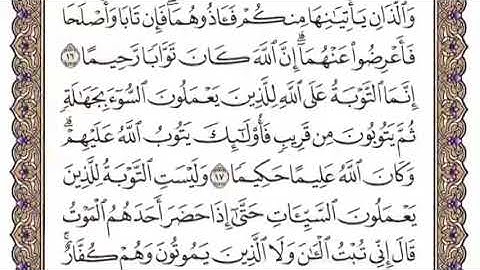 وَٱلَّذَانِ يَأۡتِيَٰنِهَا مِنكُمۡ فَـَٔاذُوهُمَاۖ فَإِن تَابَا وَأَصۡلَحَا
فَأَعۡرِضُواْ عَنۡهُمَآۗ إِنَّ ٱللَّهَ كَانَ تَوَّابٗا رَّحِيمًا ١٦
إِنَّمَا ٱلتَّوۡبَةُ عَلَى ٱللَّهِ لِلَّذِينَ يَعۡمَلُونَ ٱلسُّوٓءَ بِجَهَٰلَةٖ
ثُمَّ يَتُوبُونَ مِن قَرِيبٖ فَأُوْلَٰٓئِكَ يَتُوبُ ٱللَّهُ عَلَيۡهِمۡۗ
وَكَانَ ٱللَّهُ عَلِيمًا حَكِيمٗا ١٧ وَلَيۡسَتِ ٱلتَّوۡبَةُ لِلَّذِينَ
يَعۡمَلُونَ ٱلسَّيِّـَٔاتِ حَتَّىٰٓ إِذَا حَضَرَ أَحَدَهُمُ ٱلۡمَوۡتُ
قَالَ إِنِّي تُبۡتُ ٱلۡـَٰٔنَ وَلَا ٱلَّذِينَ يَمُوتُونَ وَهُمۡ كُفَّارٌۚ